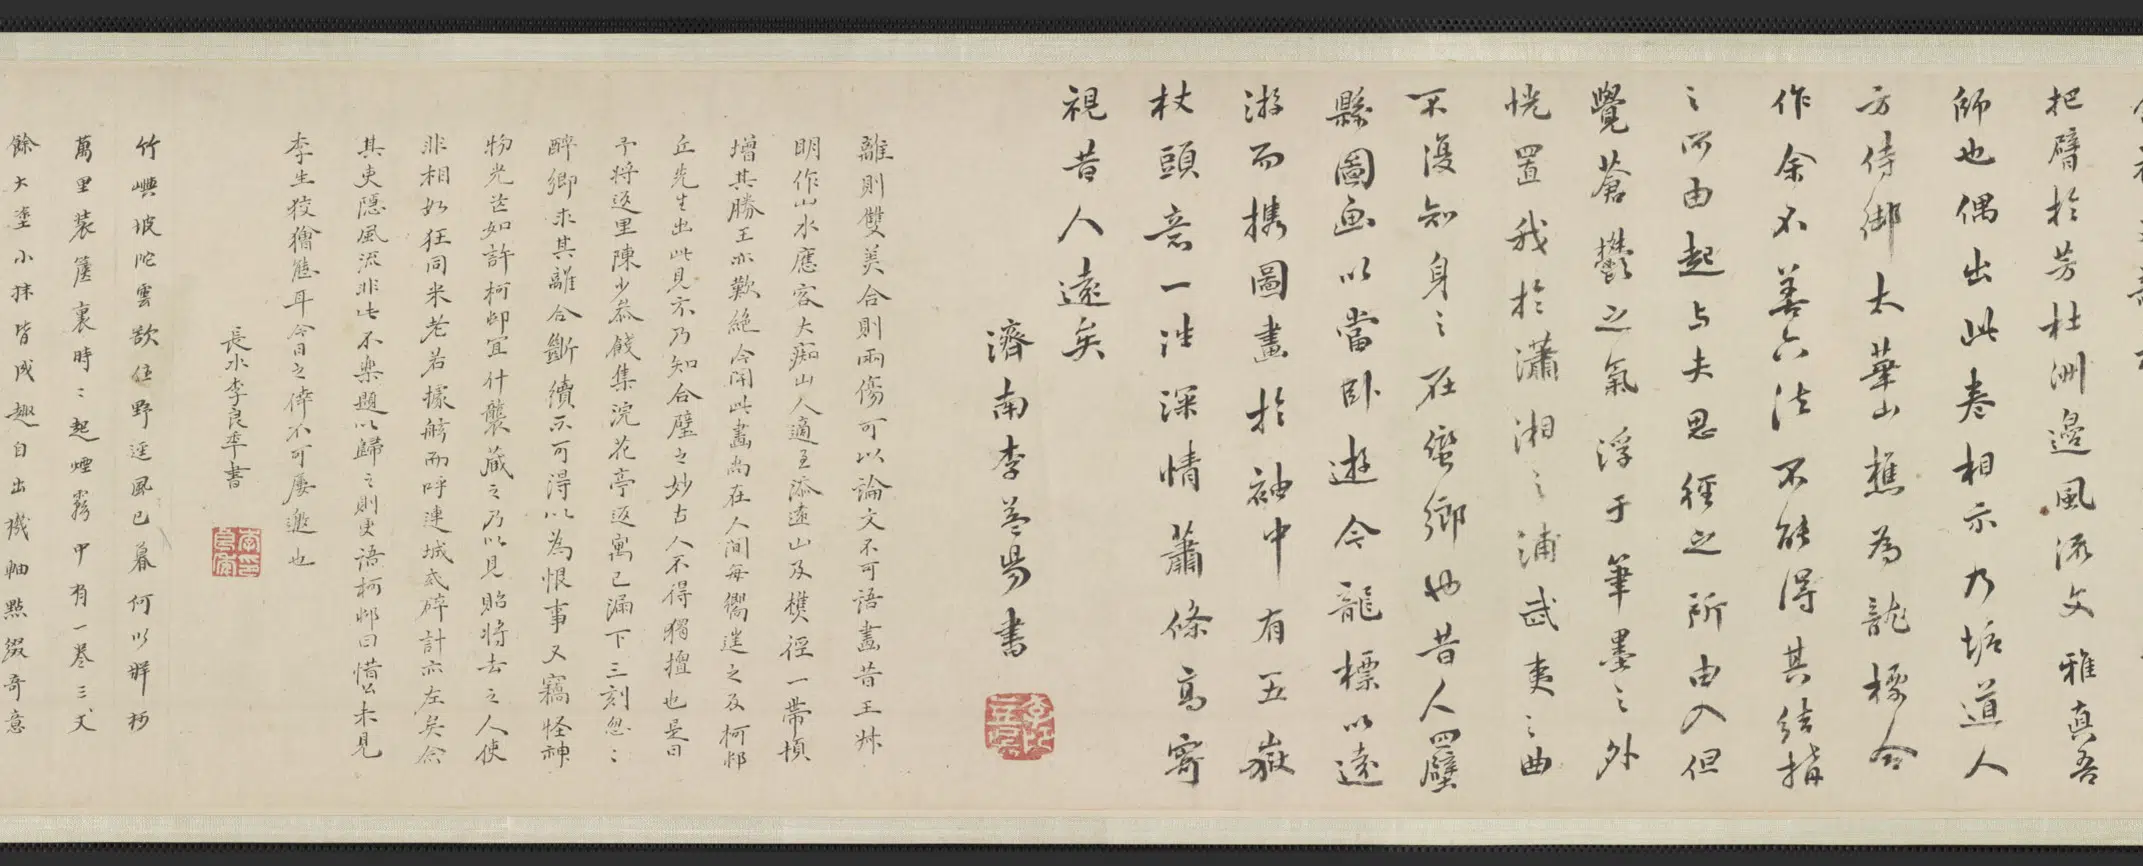 把臂於芳杜洲邊風流文雅真吾
師也偶出此卷相示乃垢道人
方侍御太華山樵為龍標令
作余不善六法不能得其結構
之所由起与夫思徑之所由入但
覺蒼鬱之氣浮于筆墨之外
恍置我於瀟湘之浦武夷之曲
不復知身之在蠻鄉也昔人羅
縣圖画以當卧遊今龍標以遠
游而攜圖畫於袖中有五嶽
杖頭意一往深情蕭條高寄
視昔人遠矣
濟南李益陽書
離則雙美合則兩傷可以論文不可語畫昔王叔
明作山水應客大痴山人適至添遠山及樵徑一帶頓
增其勝王亦歎絕今閱此畫尚在人間每嚮往之及柯邨
丘先生出此見示乃知合璧之妙古人不得獨擅也是日
予將返里陳少恭餞集浣花亭返寓已漏下三刻忽忽
醉卿求其離合斷續不可得以為恨事又竊怪神
物光芒如許柯邨宜什襲藏之乃以見貽將去之人使
非相如狂同米老若據舷而呼連城或碎計亦左矣念
其吏隱風流非此不樂題以歸之則更語柯邨曰惜公未見
李生狡獪態耳今日之倖不可屢邀也
長水李良年書
竹嶼坡陀雲欲住野逕風已暮何以解
萬里裝篋裏時時起煙霧中有一卷三丈
餘大塗小抹皆成趣自出機軸點綴奇意